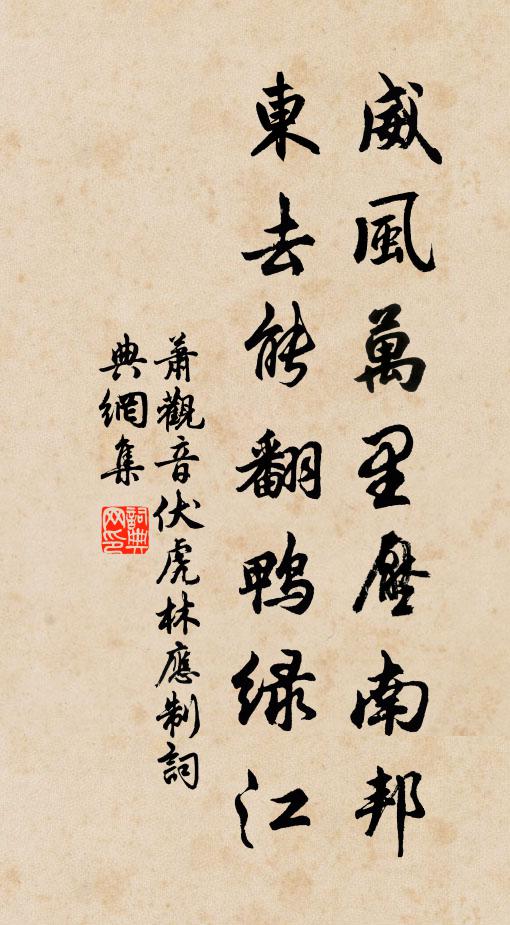 威風萬里壓南邦
東去能翻鴨綠江
蕭觀音伏虎林應制詞
典網集
詞典網印